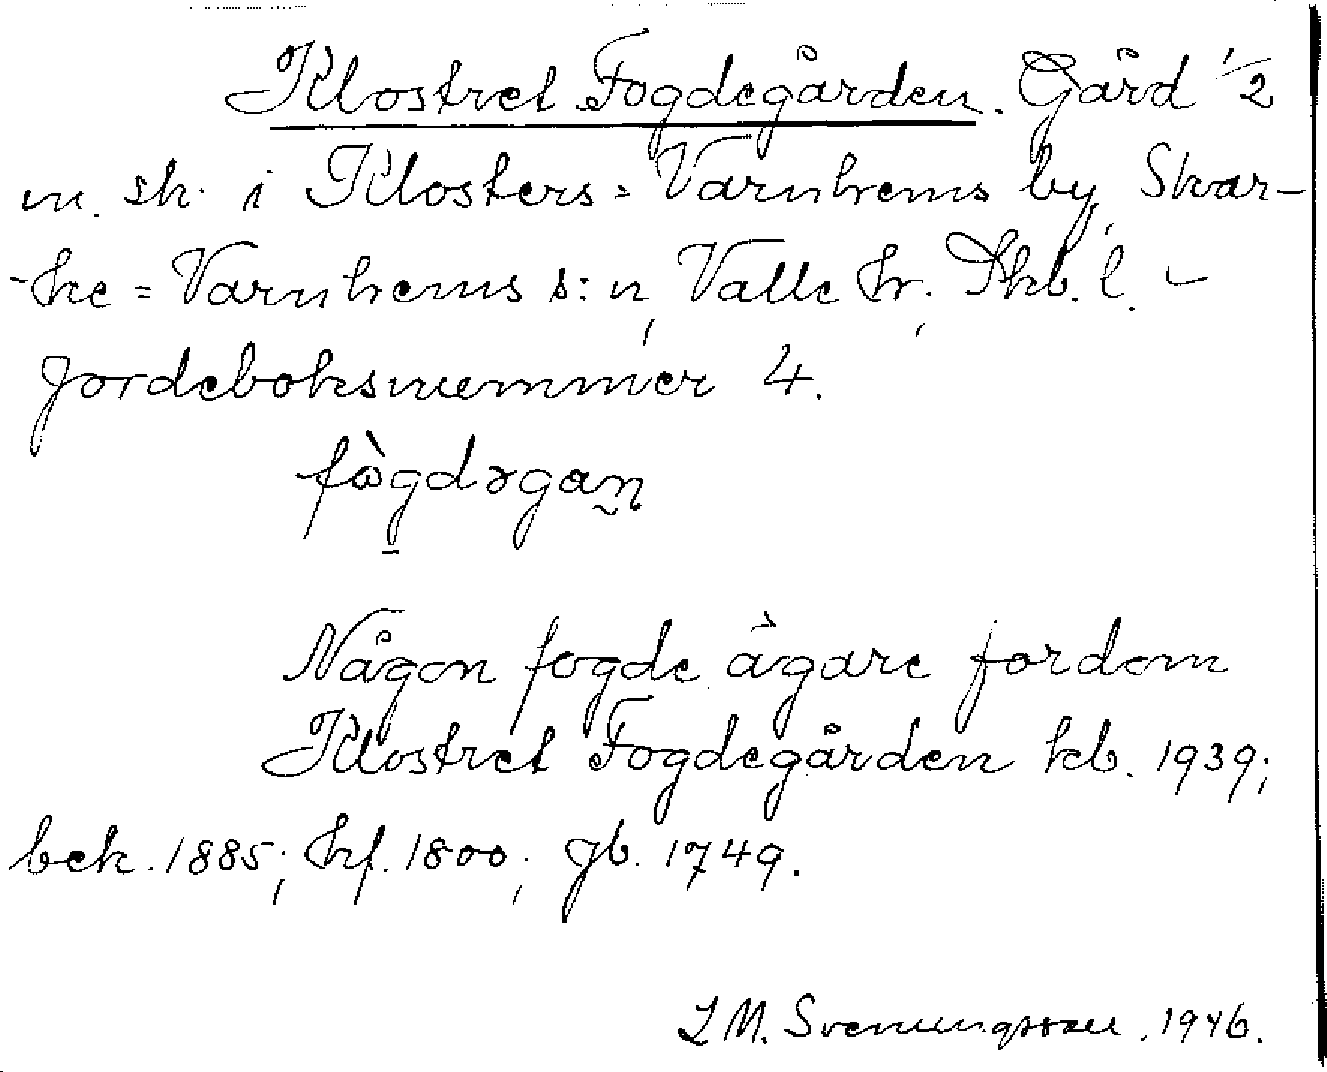 Klostret Fogdegården. Gård 1/2
m. sk. i Klosters=Varnhems by, Skar-
-ke=Varnhems s:n, Valle hr., Skb. l. -
Jordeboksnummer 4.
fògdəgan̰
Någon fogde ägare fordom
Klostret Fogdegården kb. 1939;
bck. 1885; hf. 1800; jb. 1749.
L M. Svenungsson. 1946.